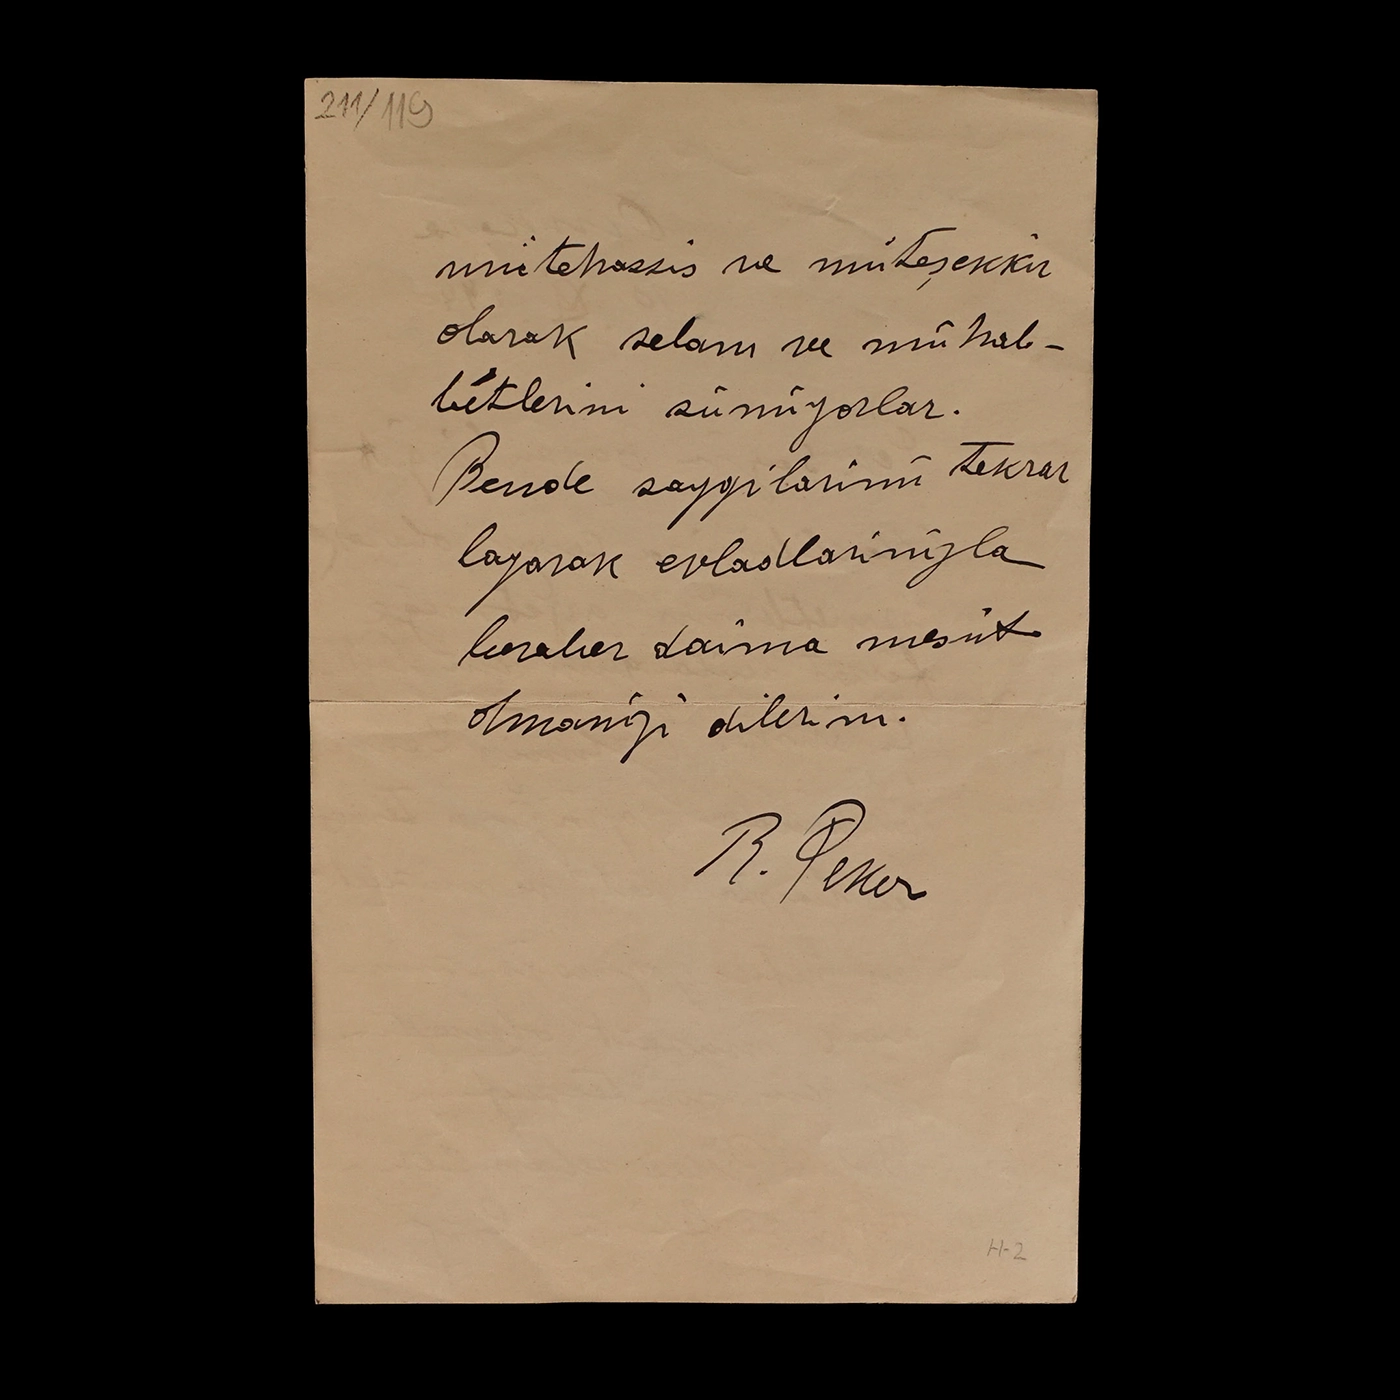 211/119
mütehassis ve müteşekkir
olarak selam ve mühab-
betlerini sünüyorlar.
Bende saygilarimi tekrar
layarak evladlarinizla
beraber daima mesüt
olmanizi dilerim.
R. Peker
H-2